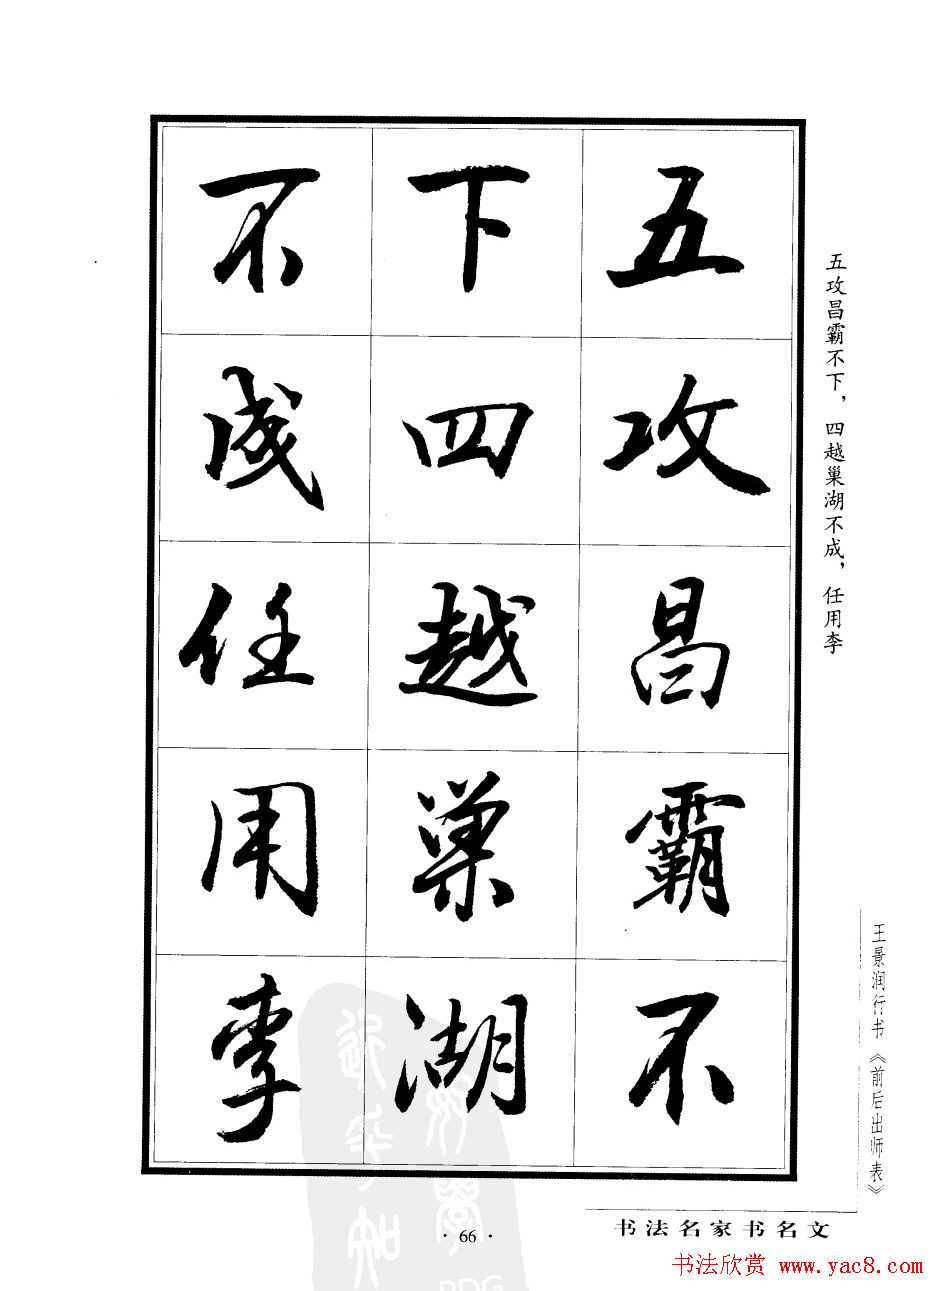 五攻昌霸不
下四越巢湖
不成任用李
五攻昌霸不下，四越巢湖不成，任用李
王景润行书《前后出师表》
书法名家书名文
·66·
书法欣赏 www.yac8.com